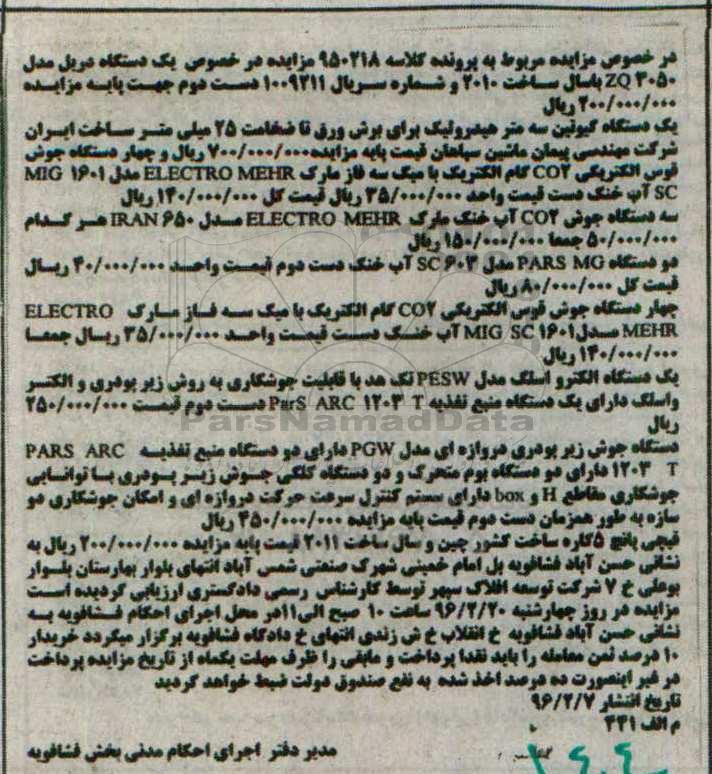 در خصوص مزایده مربوط به پرونده کلاسه ۹۵۰۲۱۸ مزایده در خصوص یک دستگاه دریل مدل
ZQ ۳۰۵۰ باسال ساخت ۲۰۱۰ و شماره سریال ۱۰۰۹۲۱۱ دست دوم جهت پایه مزایده
۲۰۰/۰۰۰/۰۰۰ ریال
یک دستگاه گیوتین سه متر هیدرولیک برای برش ورق تا ضخامت ۲۵ میلی متر ساخت ایران
شرکت مهندسی پیمان ماشین سپاهان قیمت پایه مزایده۷۰۰/۰۰۰/۰۰۰ ریال و چهار دستگاه جوش
قوس الکتریکی CO۲ گام الکتریک با میگ سه فاز مارک ELECTRO MEHR مدل MIG ۱۶۰۱
SC آب خنک دست قیمت واحد ۳۵/۰۰۰/۰۰۰ ریال قیمت کل ۱۴۰/۰۰۰/۰۰۰ ریال
سه دستگاه جوش CO۲ آب خنک مارک ELECTRO MEHR مدل IRAN ۶۵۰ هر کدام
۵۰/۰۰۰/۰۰۰ جمعا ۱۵۰/۰۰۰/۰۰۰ ریال
دو دستگاه PARS MG مدل SC ۶۰۳ آب خنک دست دوم قیمت واحد ۴۰/۰۰۰/۰۰۰ ریال
قیمت کل ۸۰/۰۰۰/۰۰۰ ریال
چهار دستگاه جوش قوس الکتریکی CO۲ گام الکتریک با میگ سه فاز مارک ELECTRO
MEHR مدل۱۶۰۱ MIG SC آب خنک دست قیمت واحد ۳۵/۰۰۰/۰۰۰ ریال جمعا
۱۴۰/۰۰۰/۰۰۰ ریال
یک دستگاه الکترو اسلگ مدل PESW تک هد با قابلیت جوشکاری به روش زیر پودری و الکتر
واسلگ دارای یک دستگاه منبع تغذیه ParS ARC ۱۲۰۳ T دست دوم قیمت ۲۵۰/۰۰۰/۰۰۰
ریال
ParsNamadData
دستگاه جوش زیر پودری دروازه ای مدل PGW دارای دو دستگاه منبع تغذیه PARS ARC
۱۲۰۳ T دارای دو دستگاه بوم متحرک و دو دستگاه کلگی جوش زیر پودری با توانایی
جوشکاری مقاطع H و box دارای سستم کنترل سرعت حرکت دروازه ای و امکان جوشکاری دو
سازه به طور همزمان دست دوم قیمت پایه مزایده ۴۵۰/۰۰۰/۰۰۰ ریال
قیچی پانچ ۵کاره ساخت کشور چین و سال ساخت ۲۰۱۱ قیمت پایه مزایده ۲۰۰/۰۰۰/۰۰۰ ریال به
نشانی حسن آباد فشافویه پل امام خمینی شهرک صنعتی شمس آباد انتهای بلوار بهارستان بلوار
بوعلی خ ۷ شرکت توسعه افلاک سپهر توسط کارشناس رسمی دادگستری ارزیابی گردیده است
مزایده در روز چهارشنبه ۹۶/۲/۲۰ ساعت ۱۰ صبح الی۱۱در محل اجرای احکام فشافویه به
نشانی حسن آباد فشافویه خ انقلاب خ ش زندی انتهای خ دادگاه فشافویه برگزار میگردد خریدار
۱۰ درصد ثمن معامله را باید نقدا پرداخت و مابقی را ظرف مهلت یکماه از تاریخ مزایده پرداخت
در غیر اینصورت ده درصد اخذ شده به نفع صندوق دولت ضبط خواهد گردید
تاریخ انتشار ۹۶/۲/۷
م الف ۴۴۱
مدیر دفتر اجرای احکام مدنی بخش فشافویه